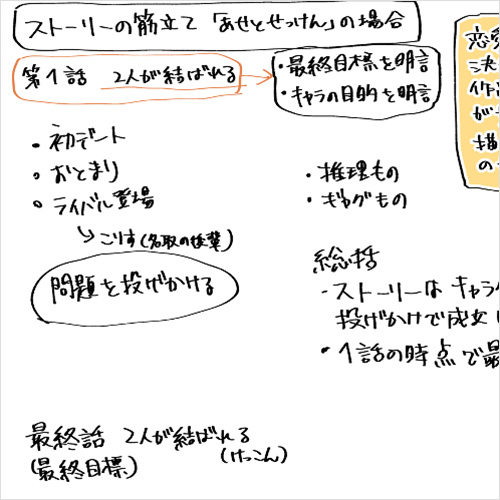 ストーリーの筋立て「あせとせっけん」の場合
第1話 2人が結ばれる
・最終目標を明言
・キャラの目的を明言
・初デート
・おとまり
・ライバル登場
→こりす(名取の後輩)
問題を投げかける
最終話 2人が結ばれる
(最終目標)
(けっこん)
・推理もの
・ギャグもの
総括
・ストーリーは キャラ
投げかけで成立
・1話の時点で最
恋愛
決
作
が
描
の